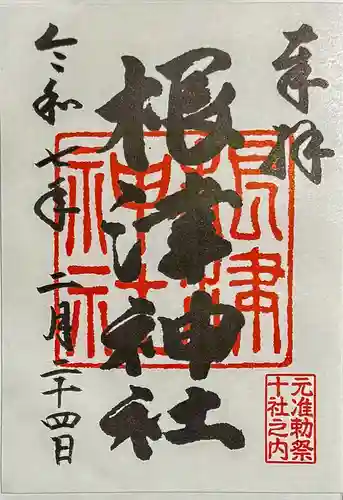 奉拝
根津神社
令和七年二月二十四日
根津
神社
元准勅祭
十社之内